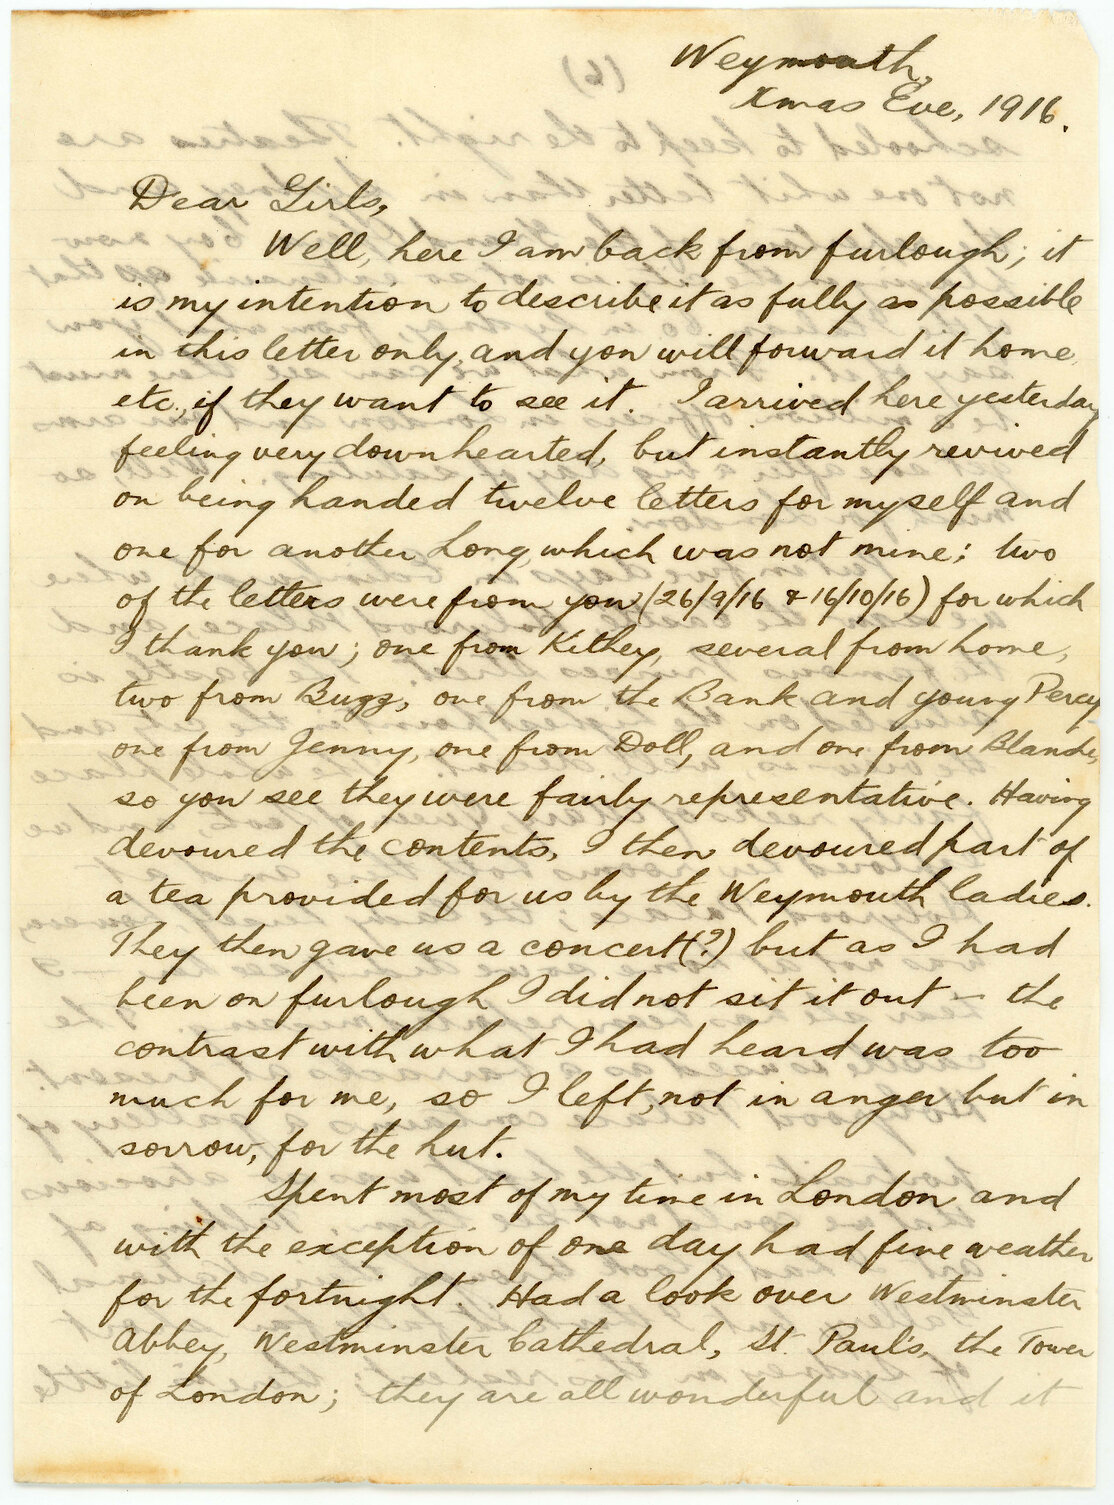 Weymouth,
Xmas Eve, 1916.
Dear Girls,
Well, here I am back from furlough; it
is my intention to describe it as fully as possible
in this letter only, and you will forward it home,
etc., if they want to see it. I arrived here yesterday
feeling very downhearted, but instantly revived
on being handed twelve letters for myself and
one for another Long, which was not mine; two
of the letters were from you (26/9/16 & 16/10/16) for which
I thank you; one from Kithey, several from home,
two from Bugz, one from the Bank and young Percy
one from Jenny, one from Doll, and one from Blanche,
so you see they were fairly representative. Having
devoured the contents, I then devoured part of
a tea provided for us by the Weymouth ladies.
They then gave us a concert(?) but as I had
been on furlough I did not sit it out — the
contrast with what I had heard was too
much for me, so I left, not in anger but in
sorrow, for the hut.
Spent most of my time in London and
with the exception of one day had fine weather
for the fortnight. Had a look over Westminster
Abbey, Westminster Cathedral, St. Paul's, the Tower
of London; they are all wonderful and it